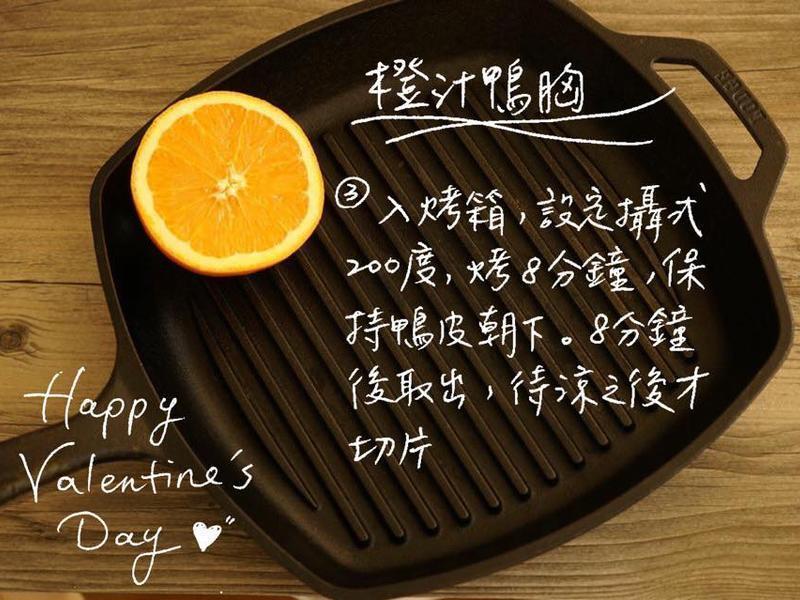 橙汁鴨胸
③入烤箱，設定攝式
200度，烤8分鐘，保
持鴨皮朝下。8分鐘
後取出，待涼之後才
切片
Happy
Valentine's
Day